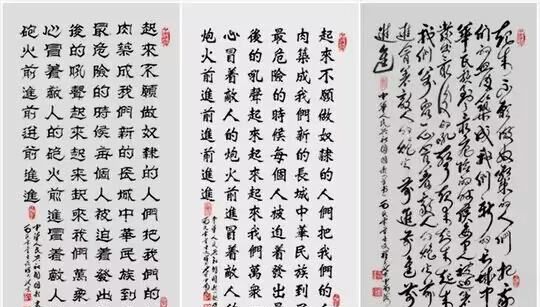 起來不願做奴隸的人們把我們的
肉築成我們新的長城中華民族到
最危險的時候每個人被迫着發
後的吼聲起來起來起來我們萬衆
心冒着敵人的砲火前進冒着敵人
砲火前進前進前進進
中華人民共和國國歌
起來不願做奴隸的人們把我們的
肉築成我們新的長城中華民族到
最危險的時候每個人被迫着發出
後的吼聲起來起來起來我們萬衆
心冒着敵人的炮火前進冒着敵人
炮火前進前進前進進
中華人民共和國國歌
起来不愿做奴隶的人们把我
们的血肉築成我们新的长城中
華民族到了最危险的时候每个人被迫
我们万众一心冒着敌人的炮火前進
進冒着敌人的炮火前進前進
進進
中华人民共和国国歌